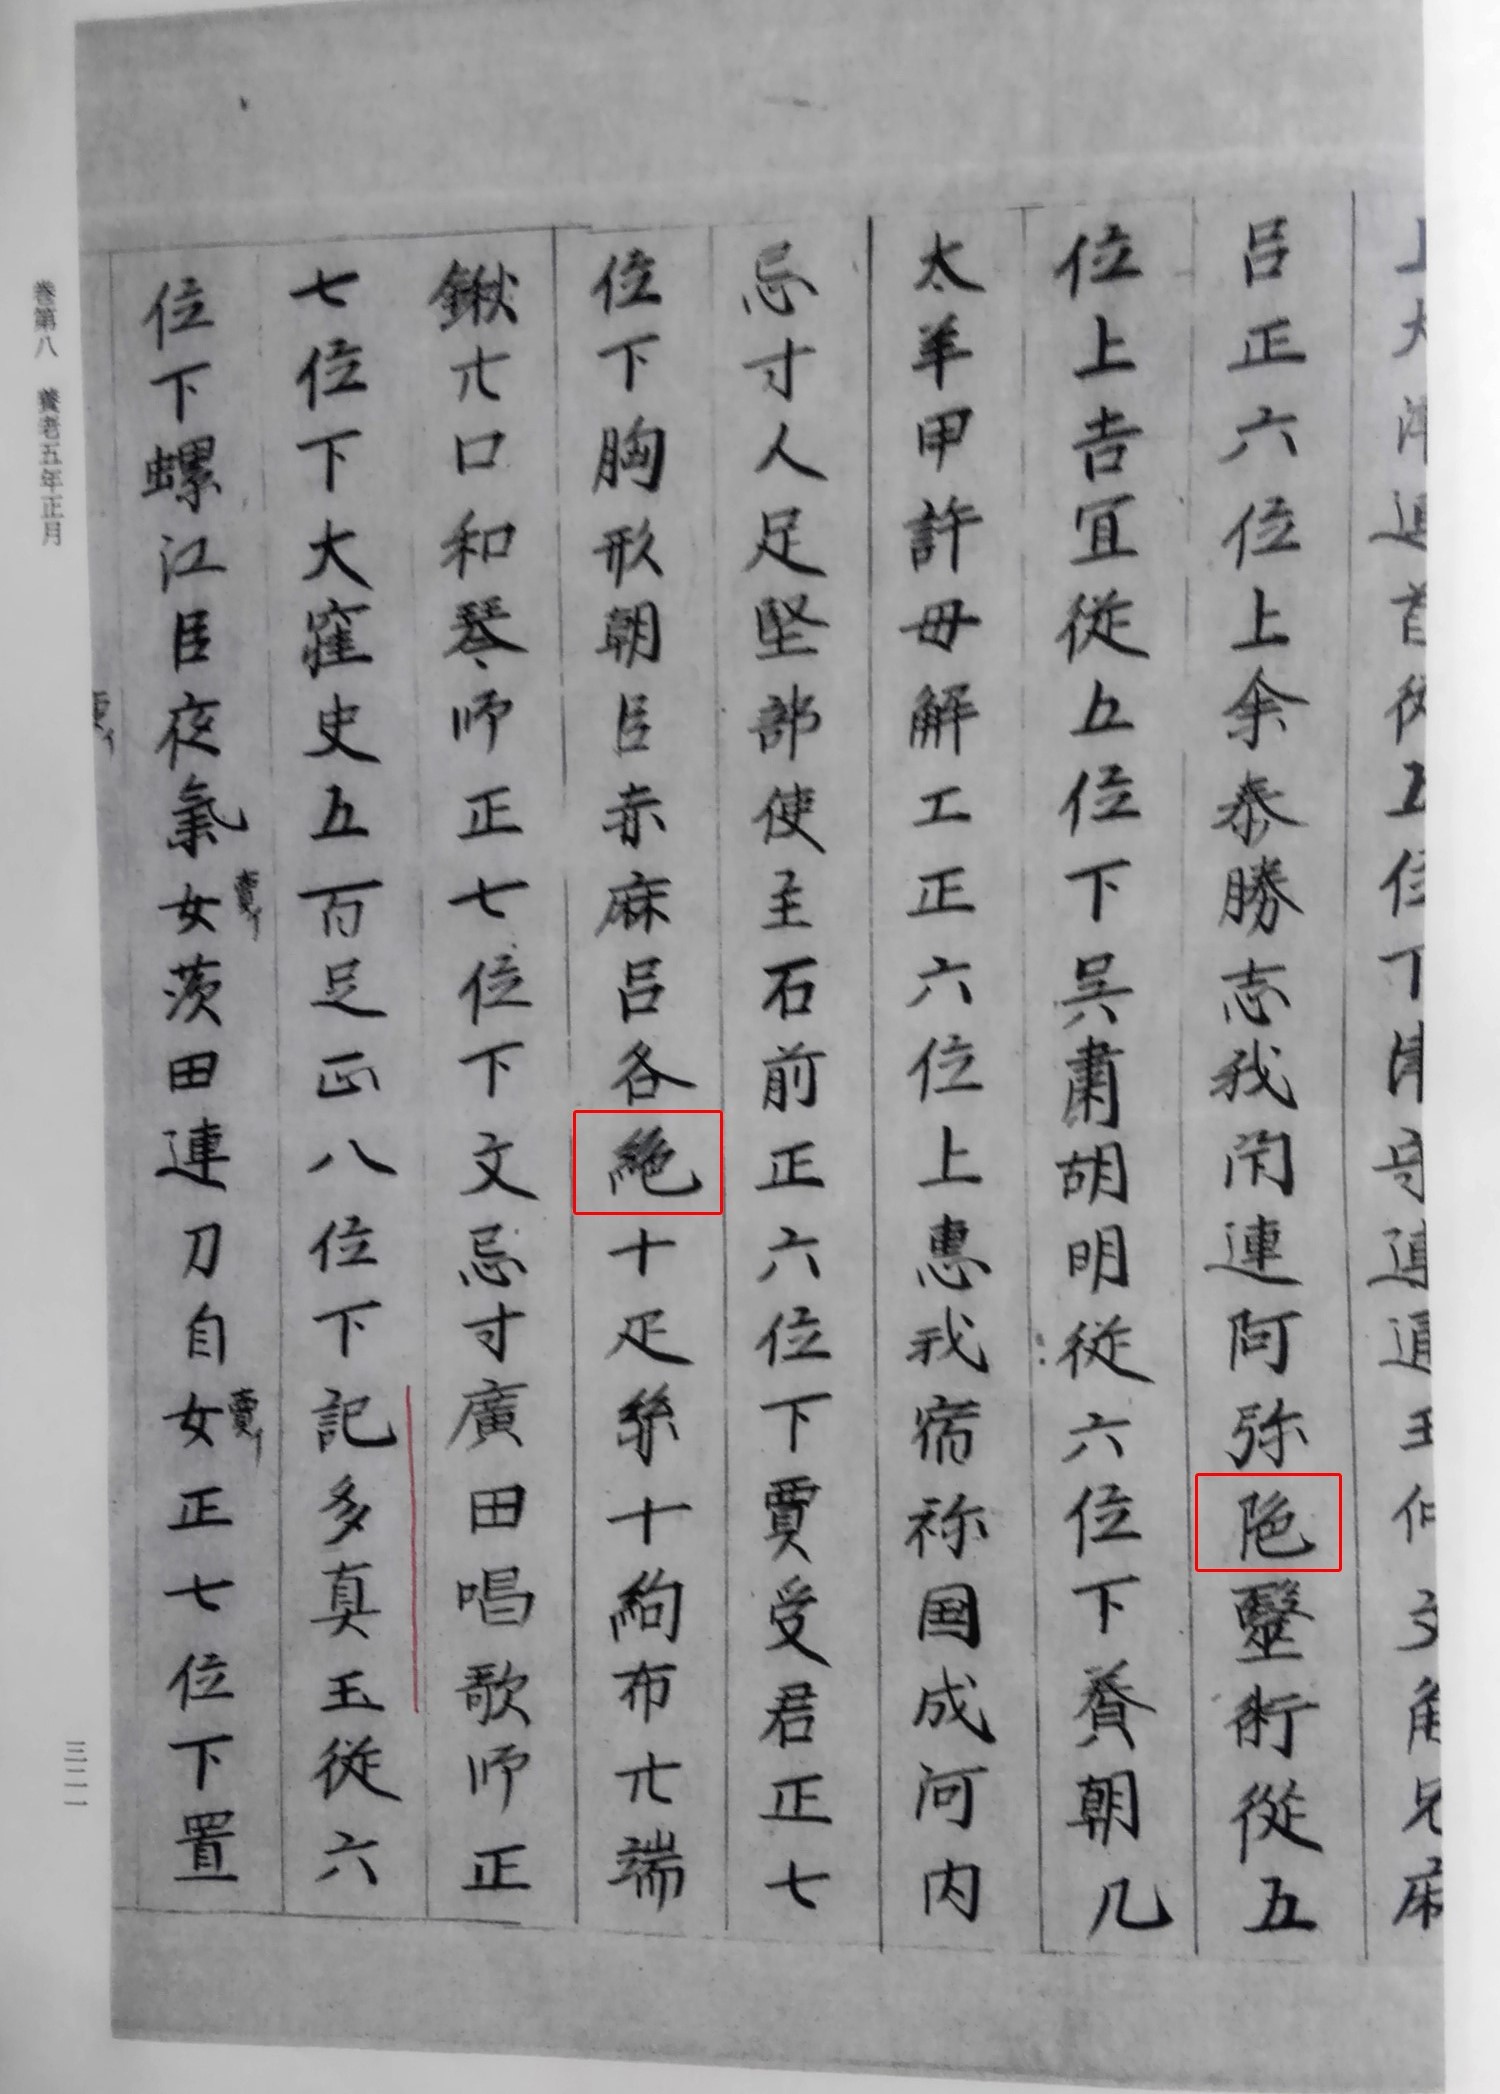 呂正六位上余泰勝志我閇連阿弥陁毉術從五
位上吉冝從五位下吳肅胡明從六位下賁朝几
太羊甲許毋解工正六位上恵我宿祢国成河内
忌寸人足堅部使主石前正六位下賈受君正七
位下胸形朝臣赤麻呂各絁十疋絲十絇布廿端
鍬廿口和琴師正七位下文忌寸廣田唱歌師正
七位下大窪史五百足正八位下記多真玉從六
位下螺江臣夜氣女茨田連刀自女正七位下置
卷第八 養老五年正月
三二一